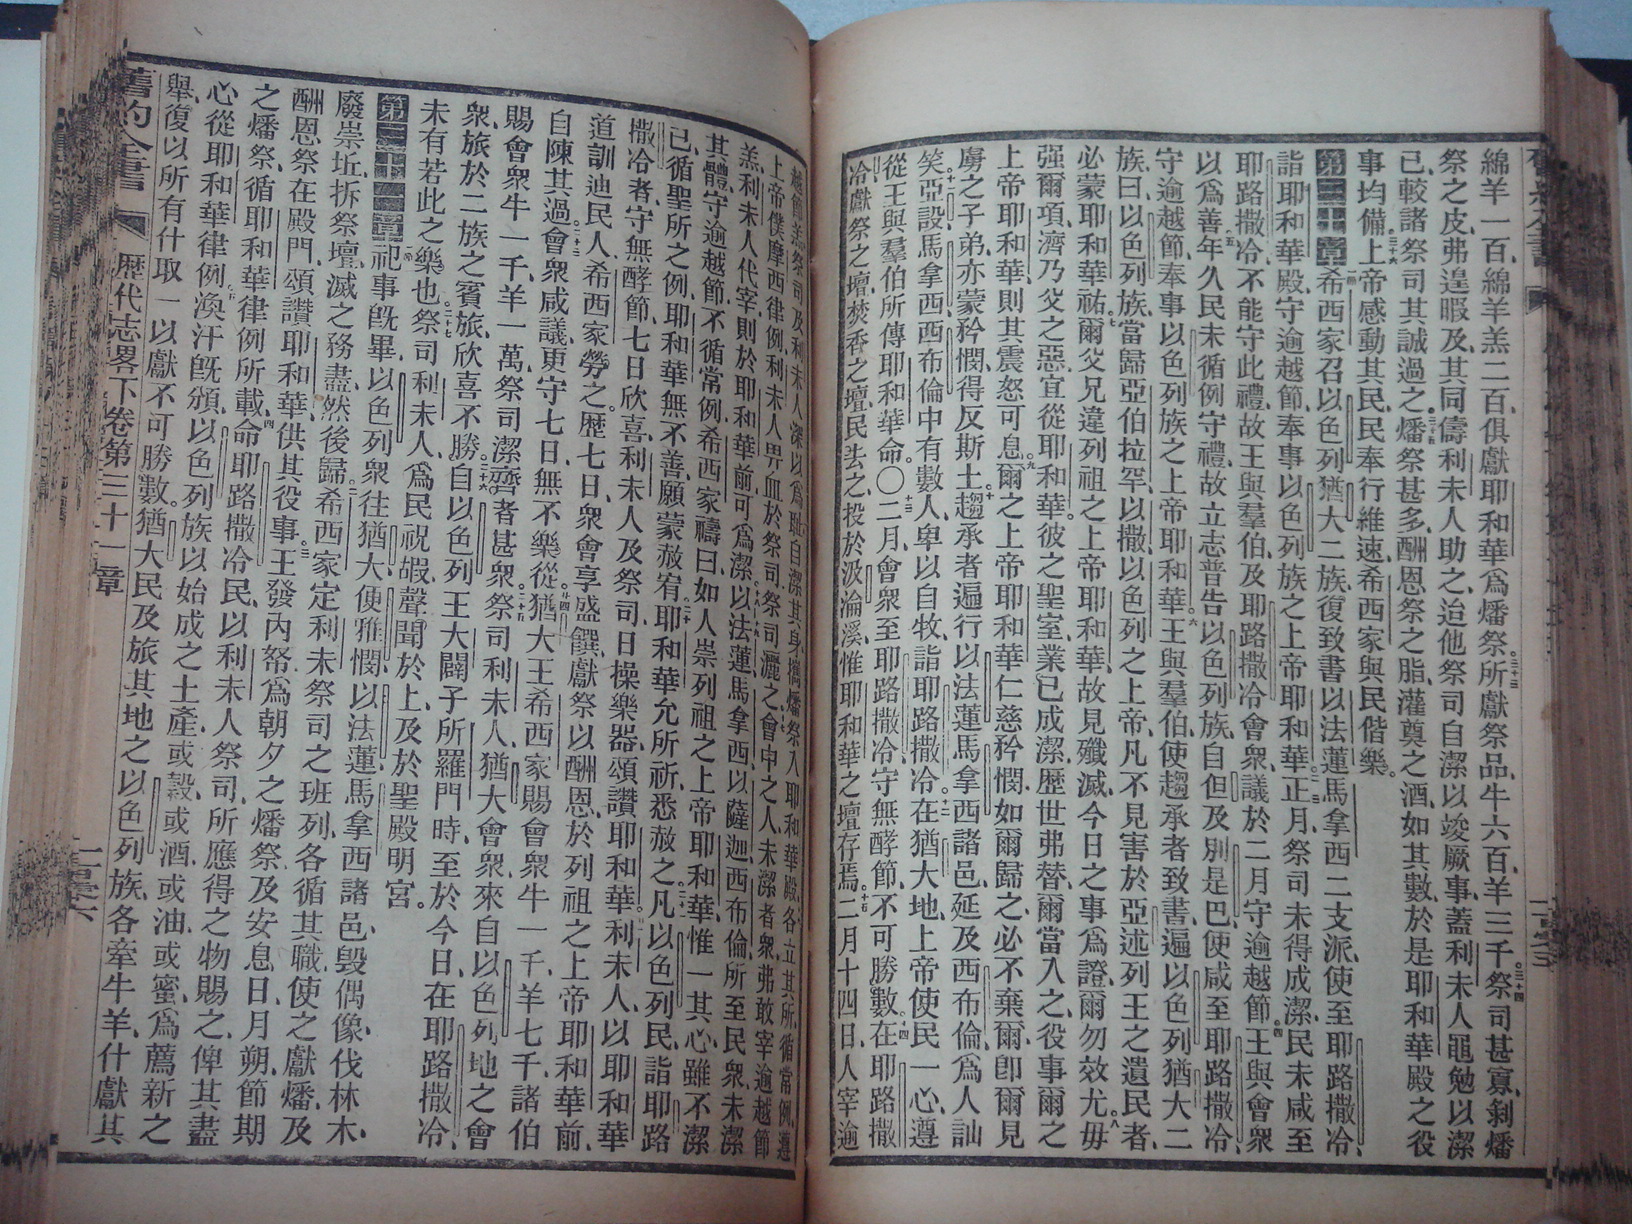 綿羊一百、綿羊羔二百、俱獻耶和華爲燔祭。三十三所獻祭品、牛六百、羊三千。三十四祭司甚寡、剝燔
祭之皮、弗遑暇及、其同儔利未人助之、迨他祭司自潔以竣厥事、蓋利未人黽勉以潔
己、較諸祭司其誠過之。三十五燔祭甚多、酬恩祭之脂、灌奠之酒、如其數、於是耶和華殿之役
事均備。三十六上帝感動其民、民奉行維速、希西家與民偕樂。
第三十章一希西家召以色列猶大二族、復致書以法蓮馬拿西二支派、使至耶路撒冷、
詣耶和華殿、守逾越節、奉事以色列族之上帝耶和華。二三正月祭司未得成潔、民未咸至
耶路撒冷、不能守此禮、故王與羣伯、及耶路撒冷會衆、議於二月守逾越節。四王與會衆
以爲善。五年久民未循例守禮、故立志普告以色列族、自但及別是巴、使咸至耶路撒冷、
守逾越節、奉事以色列族之上帝耶和華。六王與羣伯使趨承者致書、遍以色列猶大二
族曰、以色列族當歸亞伯拉罕、以撒、以色列之上帝、凡不見害於亞述列王之遺民者、
必蒙耶和華祐。七爾父兄違列祖之上帝耶和華、故見殲滅、今日之事爲證、爾勿效尤。八毋
强爾項、濟乃父之惡、宜從耶和華。彼之聖室、業已成潔、歷世弗替、爾當入之、役事爾之
上帝耶和華、則其震怒可息。九爾之上帝耶和華仁慈矜憫、如爾歸之、必不棄爾、卽爾見
虜之子弟、亦蒙矜憫、得反斯土。十趨承者遍行以法蓮馬拿西諸邑、延及西布倫、爲人訕
笑。亞設馬拿西西布倫中有數人、卑以自牧、詣耶路撒冷。十二在猶大地、上帝使民一心、遵
從王與羣伯所傳耶和華命。〇十三二月、會衆至耶路撒冷、守無酵節、不可勝數。十四在耶路撒
冷獻祭之壇、焚香之壇、民去之、投於汲淪溪、惟耶和華之壇存焉。十五二月十四日、人宰逾
越節羔、祭司及利未人深以爲耻、自潔其身、攜燔祭入耶和華殿、各立其所、循常例、遵
上帝僕摩西律例、利未人畀血於祭司、祭司灑之。十七會中之人、未潔者衆、弗敢宰逾越節
羔、利未人代宰、則於耶和華前可爲潔。十八以法蓮馬拿西以薩迦西布倫所至民衆、未潔
其體、守逾越節、不循常例、希西家禱曰、如人崇列祖之上帝耶和華、惟一其心、雖不潔
己、循聖所之例、耶和華無不善、願蒙赦宥。二十耶和華允所祈、悉赦之。二十一凡以色列民、詣耶路
撒冷者、守無酵節七日、欣喜、利未人及祭司日操樂器、頌讚耶和華。利未人以耶和華
道訓迪民人、希西家勞之。歷七日、衆會享盛饌、獻祭以酬恩、於列祖之上帝耶和華前、
自陳其過。二十三會衆咸議、更守七日、無不樂從。二十四猶大王希西家賜會衆牛一千、羊七千、諸伯
賜會衆牛一千、羊一萬、祭司潔齊者甚衆。二十五祭司利未人、猶大會衆、來自以色列地之會
衆、旅於二族之賓旅、欣喜不勝。二十六自以色列王大闢子所羅門時、至於今日、在耶路撒冷、
未有若此之樂也。二十七祭司利未人、爲民祝嘏、聲聞於上、及於聖殿明宮。
第三十一章一祀事旣畢、以色列衆往猶大便雅憫以法蓮馬拿西諸邑、毀偶像、伐林木、
廢崇坵、拆祭壇、滅之務盡、然後歸。二希西家定利未祭司之班列、各循其職、使之獻燔及
酬恩祭、在殿門頌讚耶和華、供其役事。三王發內帑、爲朝夕之燔祭、及安息日、月朔、節期
之燔祭、循耶和華律例所載。四命耶路撒冷民、以利未人祭司所應得之物賜之、俾其盡
心從耶和華律例。五渙汗旣頒、以色列族以始成之土產、或穀、或酒、或油、或蜜、爲薦新之
舉、復以所有什取一以獻、不可勝數。猶大民及旅其地之以色列族、各牽牛羊、什獻其
舊約全書 歷代志畧下 卷第三十一章